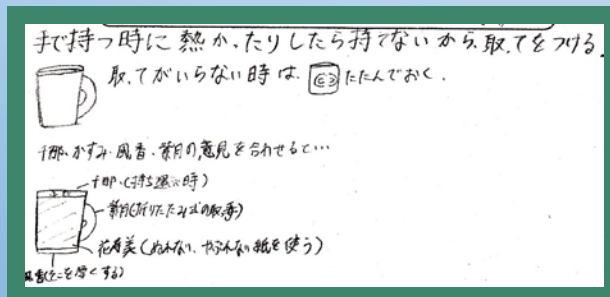 手で持つ時に熱かったりしたら持てないから、取ってをつける。
取ってがいらない時は、たたんでおく。
千那、かすみ、風香、葉月の意見を合わせると…
千那(持ち運ぶ時)
葉月(折りたたみ式の取っ手)
花寿美(ぬれない、やぶれない紙を使う)
風香(そこを厚くする)